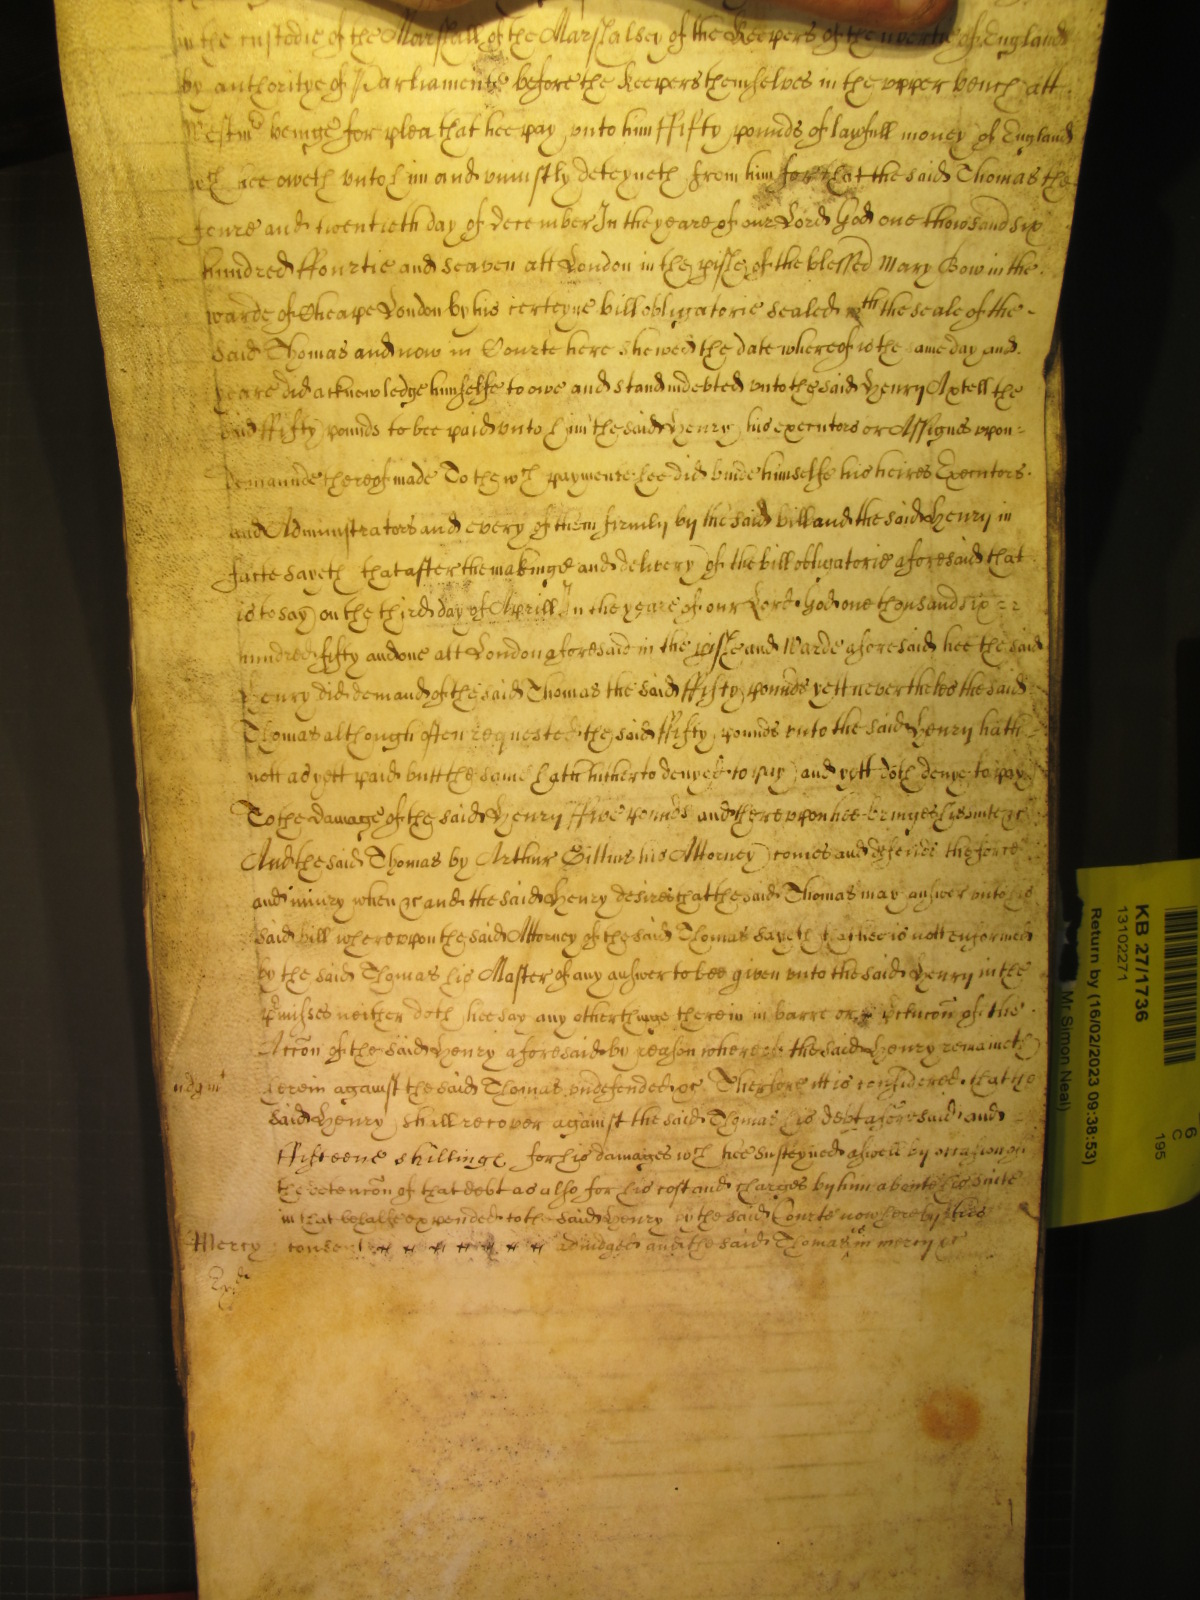 in the custodie of the Marshall of the Marshalsey of the Keepers of the libertie of England
by authoritye of Parliamente before the Keepers themselves in the upper bench att
Westmr beinge for plea that hee pay unto him ffifty pounds of lawfull money of England
wch hee oweth unto him and uniustly deteyneth from him for that the said Thomas the
and twentieth day of December In the yeare of our Lord God one thowsand six
hundred ffourtie and seaven att London in the pish of the blessed Mary Bow in the
warde of Cheape London by his certeyne bill obligatorie sealed wth the seale of the
said Thomas and now in Courte here shewed the date whereof is the same day and
yeare did acknowledge himselfe to owe and stand indebted unto the said Henry Axtell the
said ffifty pounds to bee paid unto him the said Henry his executors or Assignes upon
demaunde thereof made To the wch paymente hee did binde himselfe his heires Executors
and Administrators and every of them firmly by the said bill and the said Henry in
facte sayeth that after the makinge and delivery of the bill obligatorie aforesaid that
is to say on the third day of Aprill In the yeare of our Lord God one thousand six
hundred fifty and one att London aforesaid in the pish and Warde aforesaid hee the said
Henry did demand of the said Thomas the said ffifty pounds yett neverthelesthe said
Thomas although often requested the said ffifty pounds unto the said Henry hath
nott as yett paid butt the same hath hitherto denyed to pay and yett doth denye to pay
To the damage of the said Henry ffive pounds and thereupon hee bringes his suite &c
And the said Thomas by Arthur his Attorney comes and defends the force
and iniury when &c and the said Henry desires that the said Thomas may answer unto his
said bill whereupon the said Attorney of the said Thomas sayeth that hee is nott enformed
by the said Thomas his Master of any answer to bee given unto the said Henry in the
pmisses neither doth hee say any other thinge therein in barre or pclucon of the
Accon of the said Henry aforesaid by reason whereof the said Henry remaineth
iudgmt therein against the said Thomas undefended &c Therfore itt is considered that the
said Henry shall recover against the said Thomas his debt aforesaid and
ffifteene shillinge for his damages wch hee susteyned aswell by occasion of
the detencon of that debt as also for his cost and charges by him aboute his suite
in that behalfe expended to the said Henry by the said Courte now here by his
Mercy consent adiudged and the said Thomas is in mercy &c
KB 27/1736
13102271
Return by (16/02/2023 09:38:53)
Mr Simon Neal
6
C
195